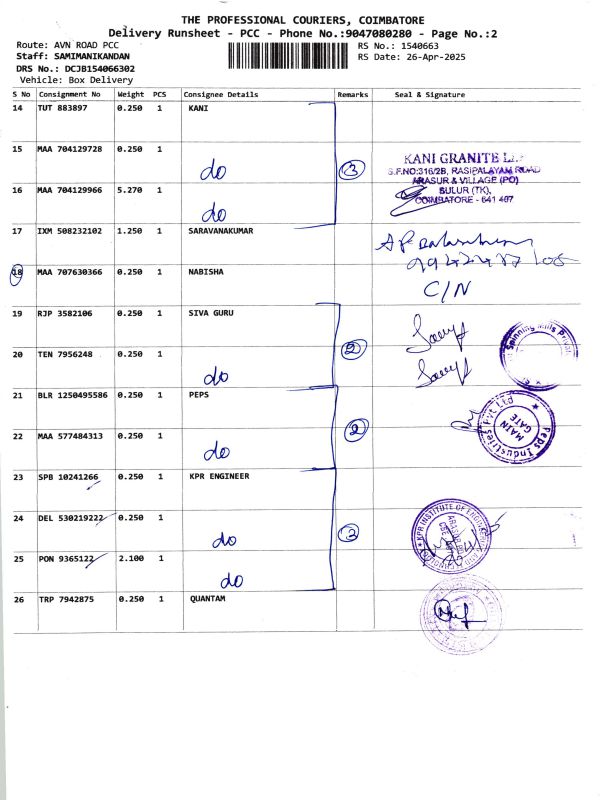 THE PROFESSIONAL COURIERS, COIMBATORE
Delivery Runsheet - PCC - Phone No.:9047080280 - Page No.:2
Route: AVN ROAD PCC RS No.: 1540663
Staff: SAMIMANIKANDAN RS Date: 26-Apr-2025
DRS No.: DCJB154066302
Vehicle: Box Delivery
S No Consignment No Weight PCS Consignee Details Remarks Seal & Signature
14 TUT 883897 0.250 1 KANI
15 MAA 704129728 0.250 1 do 3
KANI GRANITE
S.F.NO:316/2B, RASIPALAYAM ROAD
ARASUR & VILLAGE (PO)
SULUR (TK),
COIMBATORE - 641 407
16 MAA 704129966 5.270 1 do
17 IXM 508232102 1.250 1 SARAVANAKUMAR
18 MAA 707630366 0.250 1 NABISHA C/N
19 RJP 3582106 0.250 1 SIVA GURU
20 TEN 7956248 0.250 1 do 2
Spinning Mills Privat
21 BLR 1250495586 0.250 1 PEPS
22 MAA 577484313 0.250 1 do 2
Peps Industries Pvt Ltd
MAIN
GATE
23 SPB 10241266 0.250 1 KPR ENGINEER
24 DEL 530219222 0.250 1 do 3
KPR INSTITUTE OF ENGINEERING AND
ARASUR
25 PON 9365122 2.100 1 do
26 TRP 7942875 0.250 1 QUANTAM